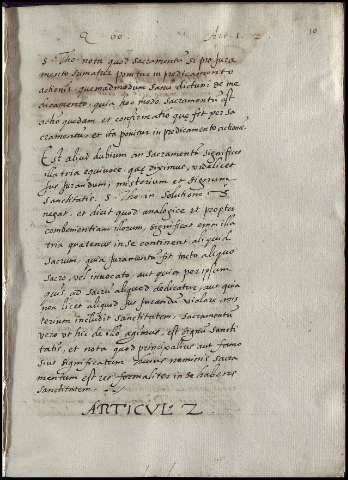 Q 60. Art. 1. 2. 10
S. Tho. nota quod Sacramentũ si pro jura
mento sumatur ponitur in predicamento
actionis quemadmodum sanũ dictum de me
dicamento, quia hoc modo sacramentũ est
actio quedam et confirmatio que fit per sa
cramentũ, et ita ponitur in predicamento actione.
Est aliud dubium an sacramentũ significet
illa tria equivoce que diximus, videlicet
jus jurandum, misterium et signum
sanctitatis. S. Tho. in solutione
negat, et dicit quod analogice et propter
combenientiam illorum, significat enim illa
tria quatenus in se continent aliquid
sacrum, quia juramentũ fit tacto aliquo
sacro, vel invocato, aut quia per ipsum
quis, ut sacrũ aliquod dedicatur, aut quia
non licet aliquod jus jurandũ violare, mis
terium includit sanctitatem. Sacramentũ
vero ut hic de illo agimus, est signũ sancti
tatis, et nota quod principalius aut famo
sius significatum huius nominis sacra
mentum est res formaliter in se habens
sanctitatem.
ARTICUL. 2